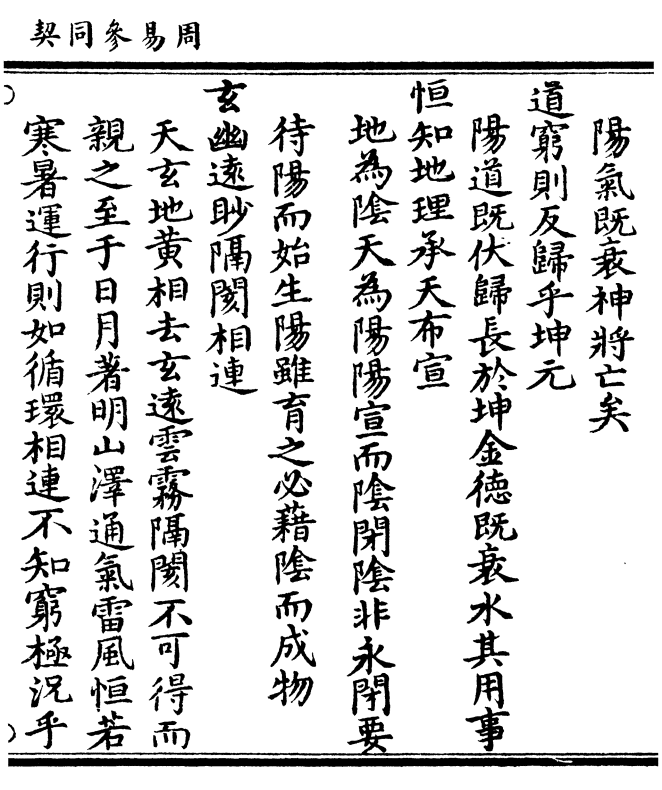 周易參同契
陽氣既衰神將亡矣
道窮則反歸乎坤元
陽道既伏歸長於坤金德既衰水其用事
恒知地理承天布宣
地為陰天為陽陽宣而陰閉陰非永閇要
待陽而始生陽雖育之必藉陰而成物
玄幽遠眇隔閡相連
天玄地黃相去玄遠雲霧隔閡不可得而
親之至于日月著明山澤通氣雷風恒若
寒暑運行則如循環相連不知窮極況乎